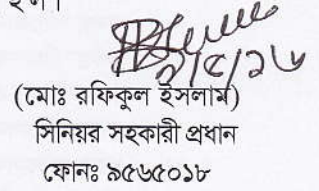 ২/৫/১৬
(মোঃ রফিকুল ইসলাম)
সিনিয়র সহকারী প্রধান
ফোনঃ ৯৫৬৫০১৮